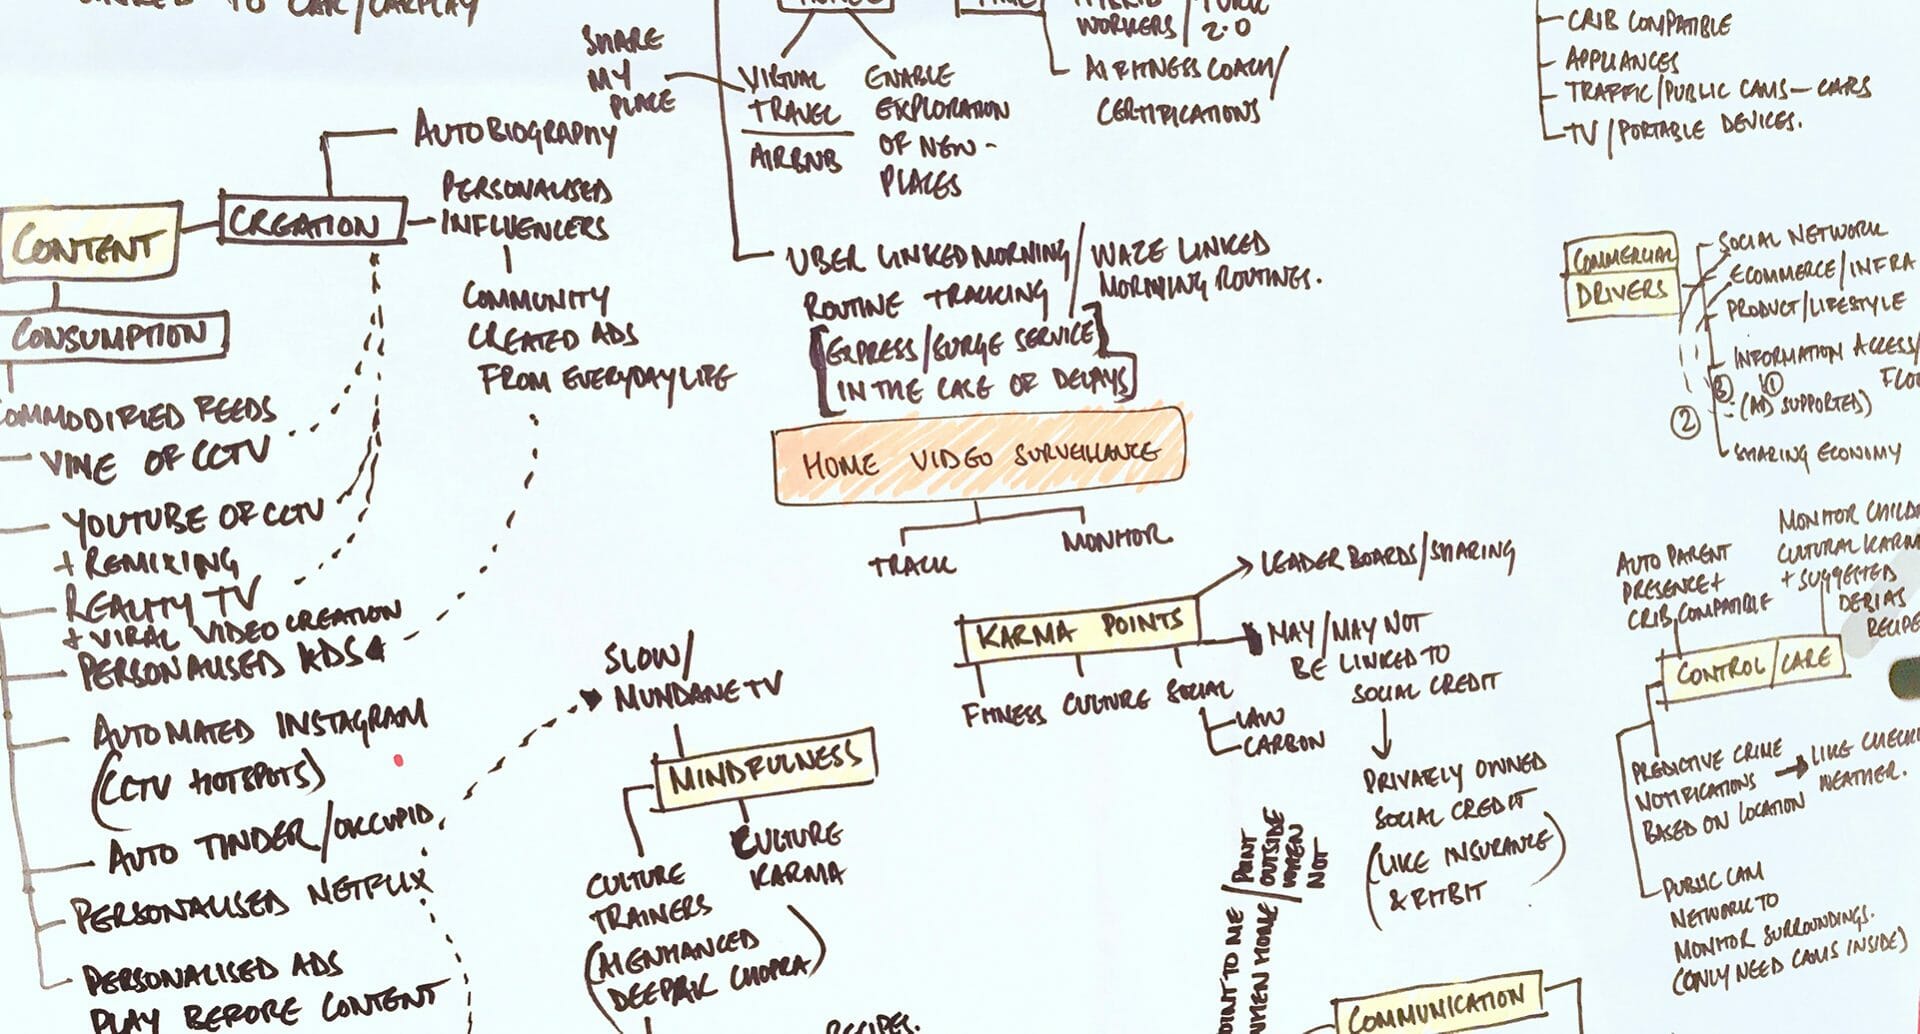 TO CAR/CARPLAY
SHARE
MY
PLACE
VIRTUAL
TRAVEL
AIRBNB
ENABLE
EXPLORATION
OF NEW-
PLACES
WORKERS/
2.0
AI FITNESS COACH/
CERTIFICATIONS
CRIB COMPATIBLE
APPLIANCES
TRAFFIC/PUBLIC CAMS-CARS
TV/PORTABLE DEVICES.
AUTOBIOGRAPHY
CONTENT
CREATION
PERSONALISED
INFLUENCERS
COMMUNITY
CREATED ADS
FROM EVERYDAY LIFE
CONSUMPTION
COMMODIFIED FEEDS
VINE OF CCTV
YOUTUBE OF CCTV
+ REMIXING
REALITY TV
+ VIRAL VIDEO CREATION
PERSONALISED ADS
AUTOMATED INSTAGRAM
(CCTV HOTSPOTS)
AUTO TINDER/OKCUPID
PERSONALISED NETFLIX
PERSONALISED ADS
PLAY BEFORE CONTENT
UBER LINKED MORNING/
ROUTINE TRACKING
WAZE LINKED
MORNING ROUTINES.
[EXPRESS/SURGE SERVICE
IN THE CASE OF DELAYS]
HOME VIDEO SURVEILLANCE
TRACK
MONITOR
SLOW/
MUNDANE TV
MINDFULNESS
CULTURE
TRAINERS
(AI ENHANCED
DEEPAK CHOPRA)
CULTURE
KARMA
RECIPES.
KARMA POINTS
LEADER BOARDS/SHARING
MAY/MAY NOT
BE LINKED TO
SOCIAL CREDIT
FITNESS
CULTURE
SOCIAL
LAW
CARBON
PRIVATELY OWNED
SOCIAL CREDIT
(LIKE INSURANCE)
& FITBIT
POINT TO ME
WHEN HOME/
POINT
OUTSIDE
WHEN
NOT
COMMUNICATION
COMMERCIAL
DRIVERS
SOCIAL NETWORK
ECOMMERCE/INFRA
PRODUCT/LIFESTYLE
INFORMATION ACCESS/
(AD SUPPORTED)
SHARING ECONOMY
3
1
2
AUTO PARENT
PRESENCE +
CRIB COMPATIBLE
MONITOR
CULTURAL KARMA
+ SUGGESTED
DEBIAS
CONTROL/CARE
PREDICTIVE CRIME
NOTIFICATIONS
BASED ON LOCATION
LIKE
WEATHER.
PUBLIC CAM
NETWORK TO
MONITOR SURROUNDINGS.
(ONLY NEED CAMS INSIDE)